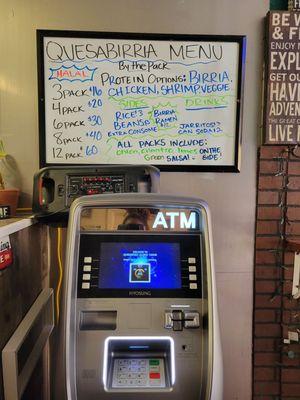 QUESABIRRIA MENU
By the Pack
HALAL
Protein Options: BIRRIA,
CHICKEN, SHRIMP, VEGGIE
3 PACK $16
4 PACK $20
6 PACK $30
8 PACK $40
12 PACK $60
SIDES
RICE $3
BEANS $3
EXTRA CONSOME
BIRRIA
RAMEN
DRINKS
JARRITOS $3
CAN SODA $2
ALL PACKS INCLUDE:
onion, cilantro, limes ON THE
Green SALSA! SIDE!
ATM
HYOSUNG
BE
ENJOY
EXPLORE
THE